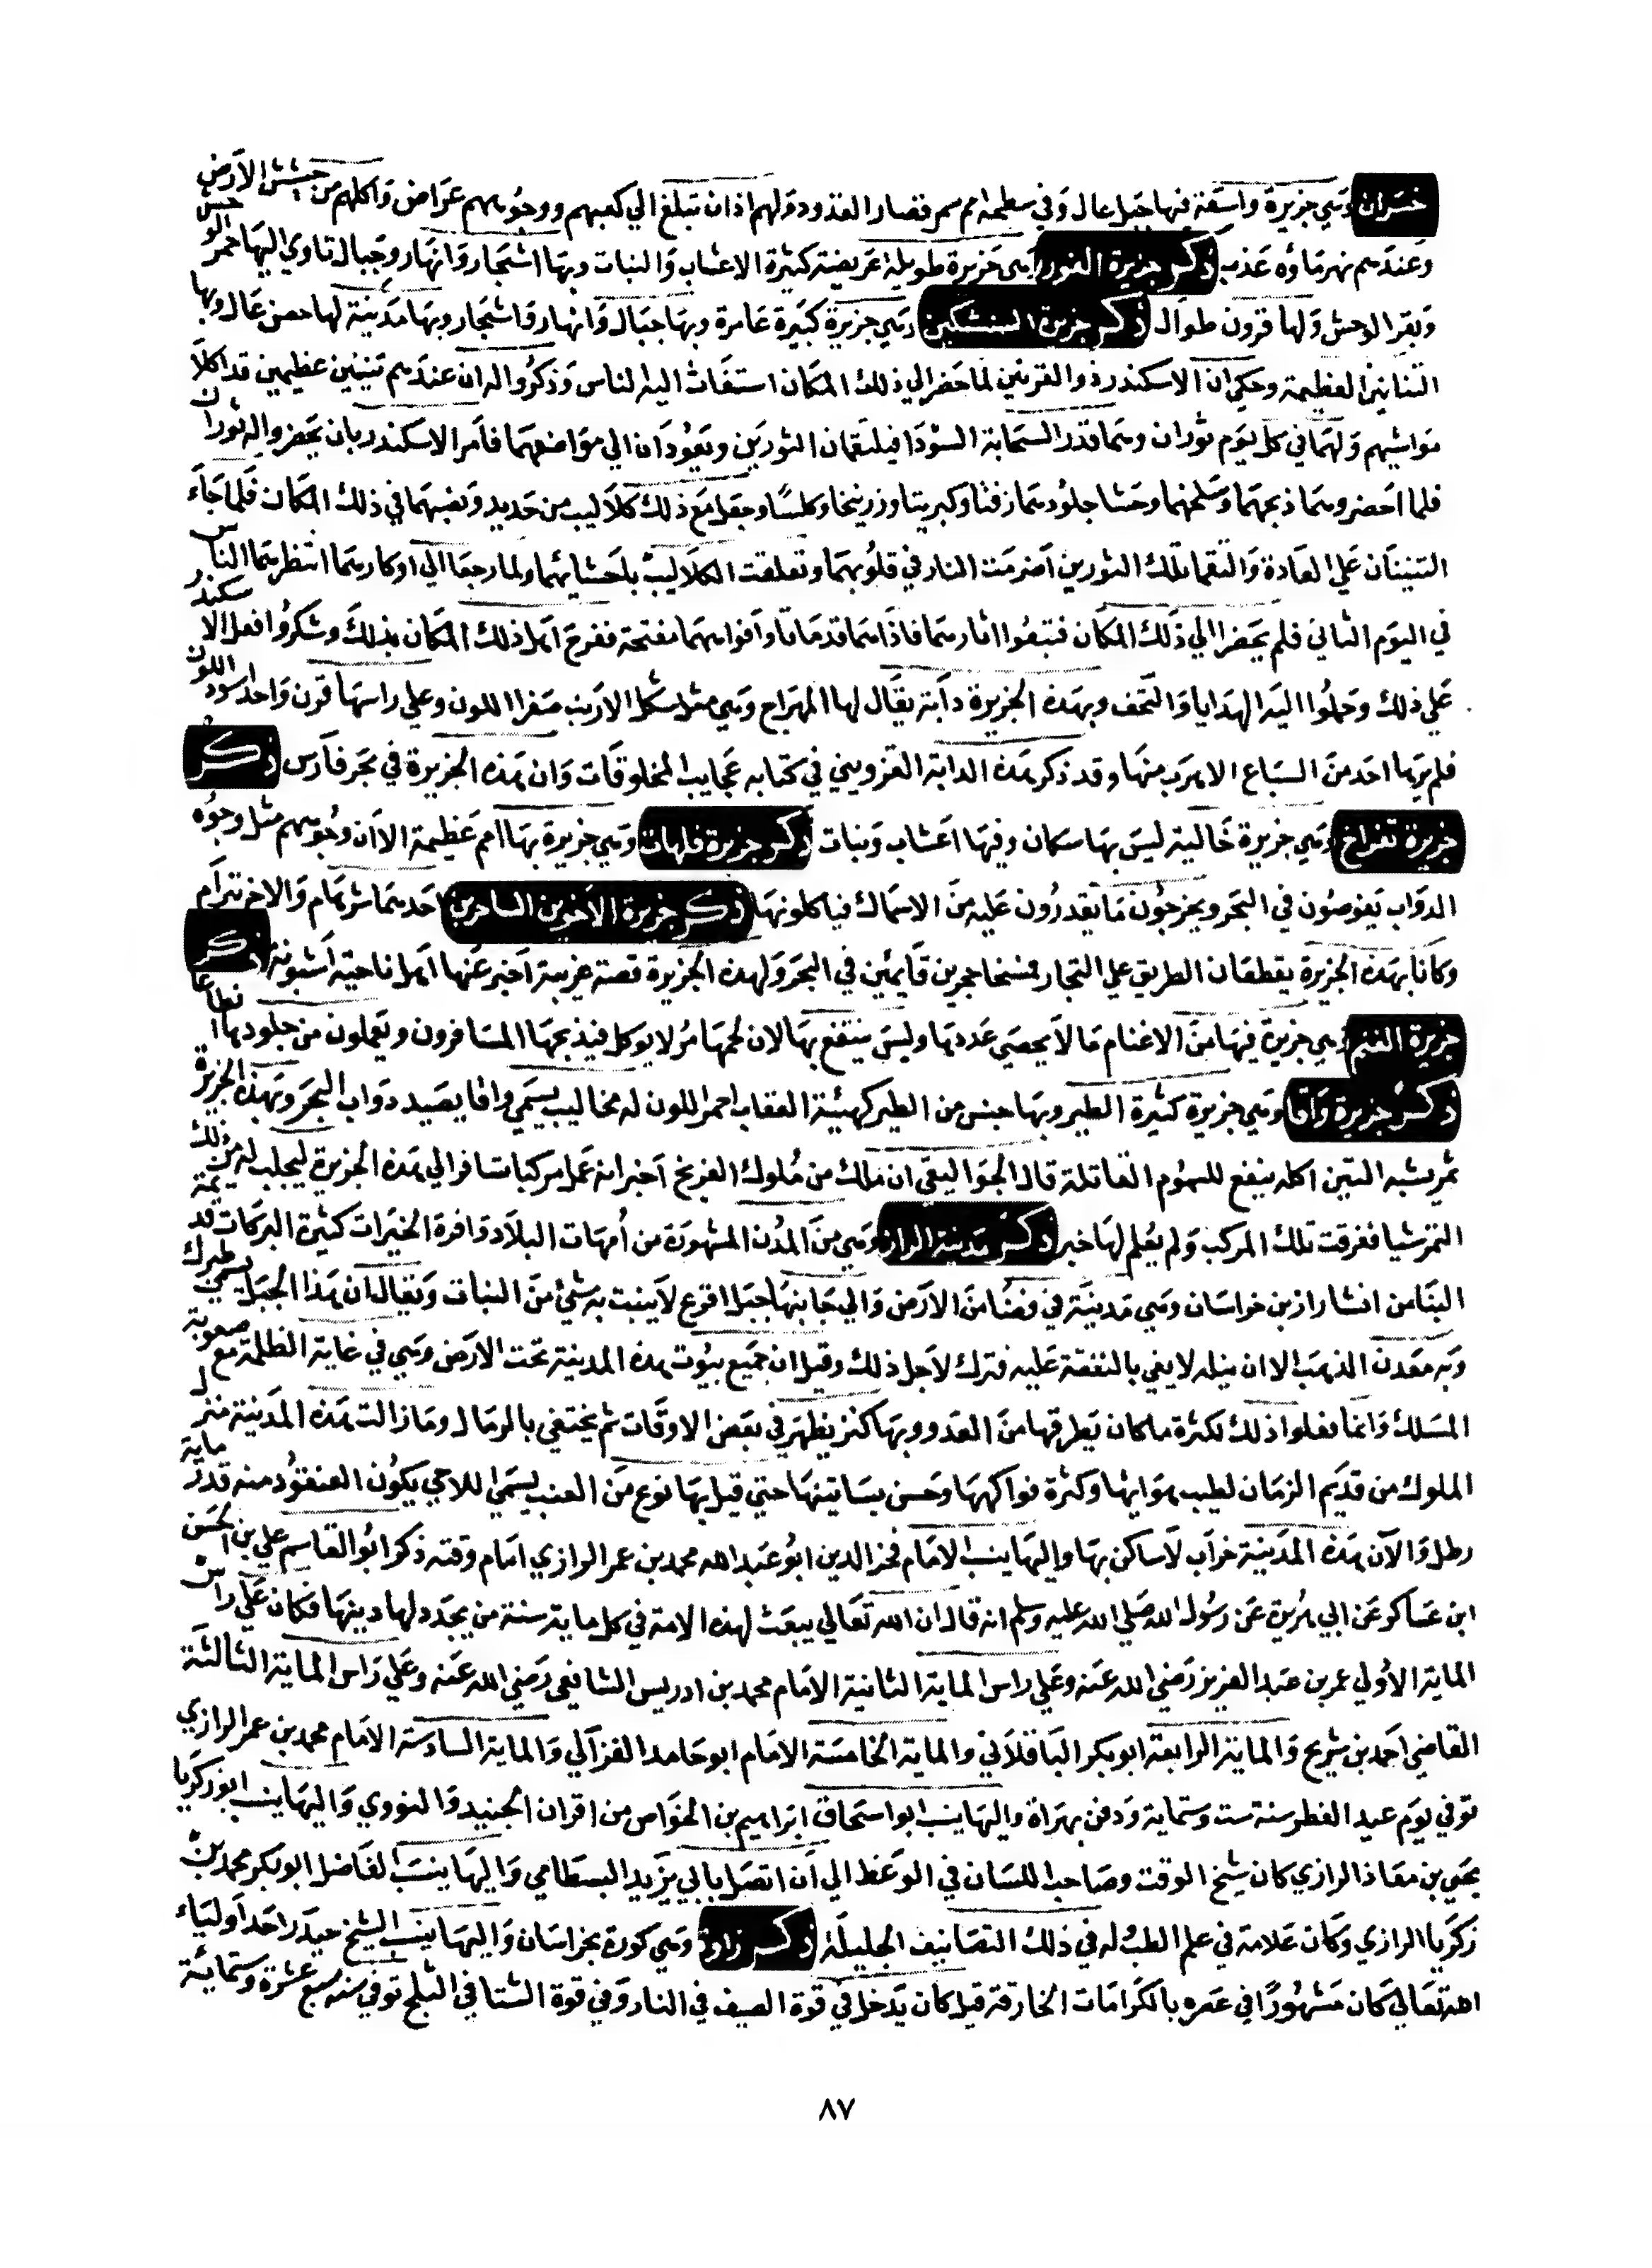 خسران وهي جزيرة واسعة فيها جبل عال وفي سطحه امم سمر قصار القدود ولهم اذان تبلغ الي كعبهم ووجوههم عراض واكلهم من حشيش الارض
وعندهم نهر ماؤه عذب ذكر جزيرة الغور هي جزيرة طويلة عريضة كثيرة الاعشاب والنبات وبها اشجار وانهار وجبال تاوي اليها حمر الوحش
وبقر الوحش ولها قرون طوال ذكر جزيرة المستشكين وهي جزيرة كبيرة عامرة وبها جبال وانهار واشجار وبها مدينة لها حصن عال وبها
التنانين العظيمة وحكي ان الاسكندر ذو القرنين لما حضر الي ذلك المكان استغاث اليه الناس وذكروا له ان عندهم تنينين عظيمين قد اكلا
مواشيهم ولهما في كل يوم ثوران وهما قدر السحابة السودا فيلتقمان الثورين ويعودان الي مواضعهما فامر الاسكندر بان يحضروا له ثوران
فلما احضروهما ذبحهما وسلخهما وحشا جلودهما زفتا وكبريتا وزرنيخا وكلسا وجعل مع ذلك كلاليب من حديد ونصبهما في ذلك المكان فلما جاء
التنينان علي العادة والتقما تلك الثورين اضرمت النار في قلوبهما وتعلقت الكلاليب باحشايهما ولما رجعا الي اوكارهما انتظرهما الناس
في اليوم الثاني فلم يحضرا الي ذلك المكان فتبعوا اثارهما فاذا هما قد ماتا وافواههما مفتحة ففرح اهل ذلك المكان بذلك وشكروا فعل الاسكندر
علي ذلك وحملوا اليه الهدايا والتحف وبهذه الجزيرة دابة يقال لها المهراج وهي مثل شكل الارنب صفرا اللون وعلي راسها قرن واحد اسود اللون
فلم يرها احد من السباع الا يهرب منها وقد ذكر هذه الدابة القزويني في كتابه عجايب المخلوقات وان هذه الجزيرة في بحر فارس ذكر
جزيرة تفراخ وهي جزيرة خالية ليس بها سكان وفيها اعشاب ونبات ذكر جزيرة قلهات وهي جزيرة بها امم عظيمة الا ان وجوههم مثل وجوه
الدواب يغوصون في البحر ويخرجون ما يقدرون عليه من الاسماك فياكلونها ذكر جزيرة الاخوين الساحرين احدهما شرهام والاخر شرام
وكانا بهذه الجزيرة يقطعان الطريق علي التجار فمسخا حجرين قايمين في البحر ولهذه الجزيرة قصة غريبة اخبر عنها اهل ناحية اشبونة ذكر
جزيرة الغنم وهي جزيرة فيها من الاغنام ما لا يحصي عددها وليس ينتفع بها لان لحمها مر لا يوكل فيذبحها المسافرون ويعملون من جلودها انطاعا
ذكر جزيرة واقا وهي جزيرة كثيرة الطير وبها جنس من الطير كهيئة العقاب احمر اللون له مخاليب يسمي واقا يصيد دواب البحر وبهذه الجزيرة
ثمر يشبه التين اكله ينفع للسموم القاتلة قال الجواليقي ان ملك من ملوك الفرنج اخبر انه عمل مركبا سافر الي هذه الجزيرة ليجلب له من ذلك
التمر شيا فغرقت تلك المركب ولم يعلم لها خبر ذكر مدينة الراز وهي من المدن المشهورة من امهات البلاد وافرة الخيرات كثيرة البركات قديمة
البنا من انشا راز بن خراسان وهي مدينة في فضا من الارض والي جانبها جبل اقرع لا ينبت به شئ من النبات ويقال ان هذا الجبل يسمي طبرك
وبه معدن الذهب الا ان نيله لا يفي بالنفقة عليه فترك لاجل ذلك وقيل ان جميع بيوت هذه المدينة تحت الارض وهي في غاية الظلمة مع صعوبة
المسلك وانما فعلوا ذلك لكثرة ما كان يطرقها من العدو وبها كنز يظهر في بعض الاوقات ثم يختفي بالرمال وما زالت هذه المدينة منزل
الملوك من قديم الزمان لطيب هوايها وكثرة فواكهها وحسن بساتينها حتي قيل بها نوع من العنب يسمي الملاحي يكون العنقود منه قدر ماية
رطل والآن هذه المدينة خراب لا ساكن بها واليها ينسب الامام فخر الدين ابو عبد الله محمد بن عمر الرازي امام وقته ذكر ابو القاسم علي بن الحسن
ابن عساكر عن ابي هريرة عن رسول الله صلي الله عليه وسلم انه قال ان الله تعالي يبعث لهذه الامة في كل ماية سنة من يجدد لها دينها فكان علي راس
الماية الأولي عمر بن عبد العزيز رضي الله عنه وعلي راس الماية الثانية الامام محمد بن ادريس الشافعي رضي الله عنه وعلي راس الماية الثالثة
القاضي احمد بن شريح والماية الرابعة ابو بكر الباقلاني والماية الخامسة الامام ابو حامد الغزالي والماية السادسة الامام محمد بن عمر الرازي
توفي يوم عيد الفطر سنة ست وستماية ودفن بهراة واليها ينسب ابو اسحاق ابراهيم بن الخواص من اقران الجنيد والنووي واليها ينسب ابو زكريا
يحيي بن معاذ الرازي كان شيخ الوقت وصاحب اللسان في الوعظ الي ان اتصل بابي يزيد البسطامي واليها ينسب الفاضل ابو بكر محمد بن
زكريا الرازي وكان علامة في علم الطب وله في ذلك التصانيف الجليلة ذكر زاوة وهي كورة بخراسان واليها ينسب الشيخ حيدر احد اولياء
الله تعالي كان مشهورا في عصره بالكرامات الخارقة قيل كان يدخل في قوة الصيف في النار وفي قوة الشتا في الثلج توفي سنة سبع عشرة وستمائة
٨٧